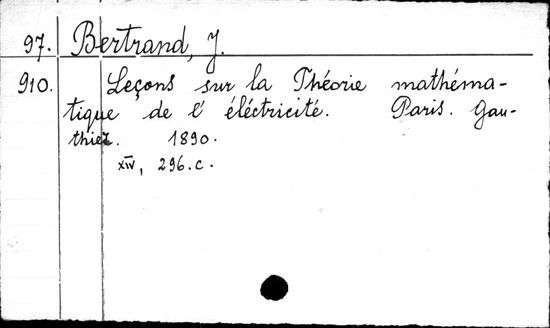 97. Bertrand, J.
910. Leçons sur la Théorie mathéma-
tique de l' éléctricité. Paris. Gau-
thier. 1890.
XIV, 296.c.